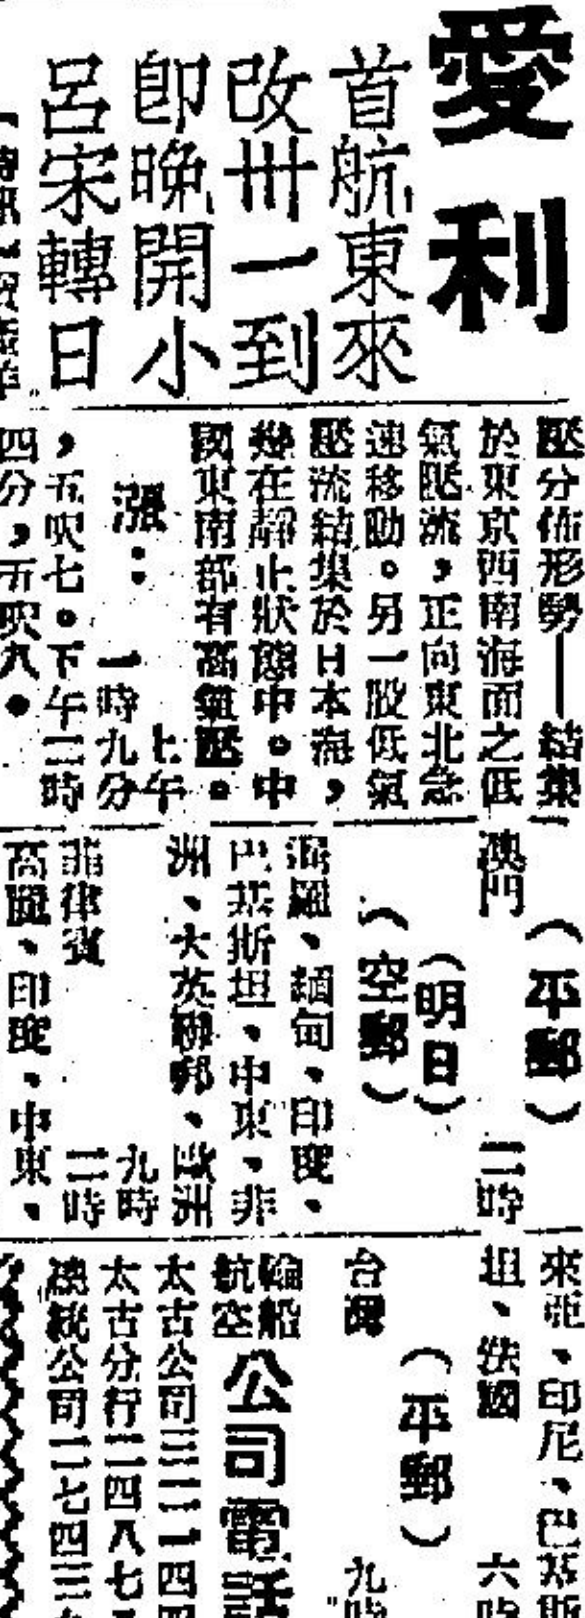 愛利
首航東來
改卅一到
即晚開小
呂宋轉日
壓分佈形勢——結集
於東京西南海面之低
氣壓流，正向東北急
速移動。另一股低氣
壓流結集於日本海，
幾在靜止狀態中。中
國東南部有高氣壓。
漲： 上午
一時九分
，五呎七。下午二時
四分，五呎八。
（平郵）
澳門 二時
（明日）
（空郵）
暹羅、緬甸、印度、
巴基斯坦、中東、非
洲、大英聯邦、歐洲
九時
菲律賓 二時
高麗、印度、中東、
來亞、印尼、巴基斯
坦、法國 六時
（平郵）
台灣 九時
輪船
航空
公司電話
太古公司三一一四四
太古分行二四八七
總統公司二七四三